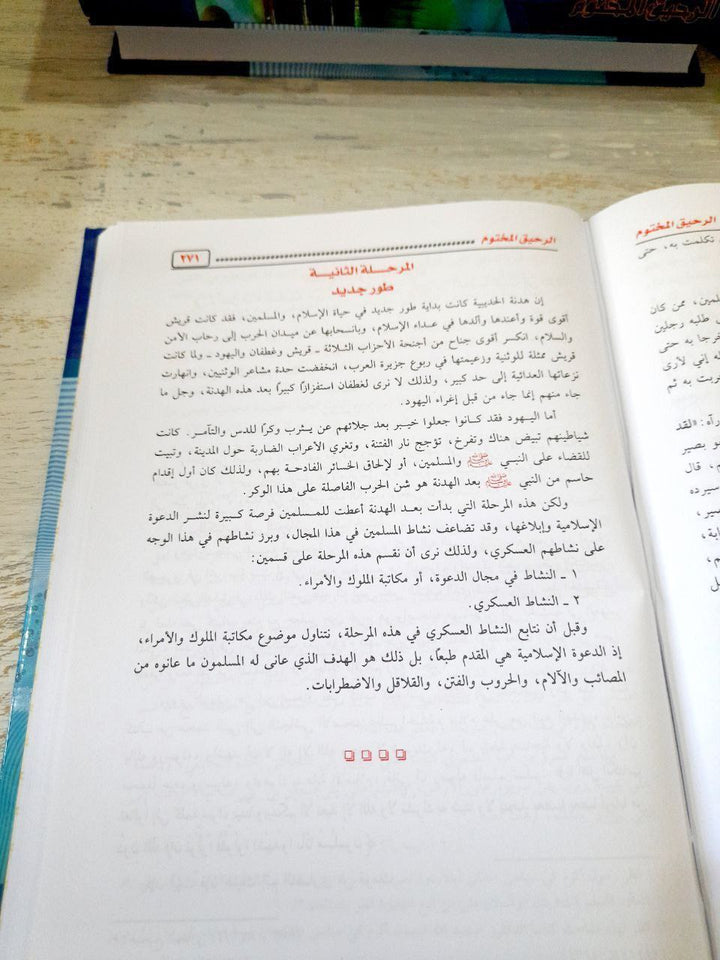 الرحيق المختوم
الرحيق المختوم
٢٧١
المرحلة الثانية
طور جديد
إن هدنة الحديبية كانت بداية طور جديد في حياة الإسلام، والمسلمين، فقد كانت قريش
أقوى قوة وأعندها وألدها في عداء الإسلام، وبانسحابها عن ميدان الحرب إلى رحاب الأمن
والسلام، انكسر أقوى جناح من أجنحة الأحزاب الثلاثة ـ قريش وغطفان واليهود ـ ولما كانت
قريش ممثلة للوثنية وزعيمتها في ربوع جزيرة العرب، انخفضت حدة مشاعر الوثنيين، وانهارت
نزعاتها العدائية إلى حد كبير، ولذلك لا نرى لغطفان استفزازًا كبيرًا بعد هذه الهدنة، وجل ما
جاء منهم إنما جاء من قبل إغراء اليهود.
أما اليهود فقد كانوا جعلوا خيبر بعد جلائهم عن يثرب وكرًا للدس والتآمر. كانت
شياطينهم تبيض هناك وتفرخ، تؤجج نار الفتنة، وتغري الأعراب الضاربة حول المدينة، وتبيت
للقضاء على النبي ﷺ والمسلمين، أو لإلحاق الخسائر الفادحة بهم، ولذلك كان أول إقدام
حاسم من النبي ﷺ بعد الهدنة هو شن الحرب الفاصلة على هذا الوكر.
ولكن هذه المرحلة التي بدأت بعد الهدنة أعطت للمسلمين فرصة كبيرة لنشر الدعوة
الإسلامية وإبلاغها، وقد تضاعف نشاط المسلمين في هذا المجال، وبرز نشاطهم في هذا الوجه
على نشاطهم العسكري، ولذلك نرى أن نقسم هذه المرحلة على قسمين:
١ ـ النشاط في مجال الدعوة، أو مكاتبة الملوك والأمراء.
٢ ـ النشاط العسكري.
وقبل أن نتابع النشاط العسكري في هذه المرحلة، نتناول موضوع مكاتبة الملوك والأمراء،
إذ الدعوة الإسلامية هي المقدم طبعًا، بل ذلك هو الهدف الذي عانى له المسلمون ما عانوه من
المصائب والآلام، والحروب والفتن، والقلاقل والاضطرابات.
الرحيق المختوم
تكلمت به، حتى
ممن كان
طلبه رجلين
حتى
إني لأرى
به ثم
رآه: «لقد
بصير
قال
سيرده